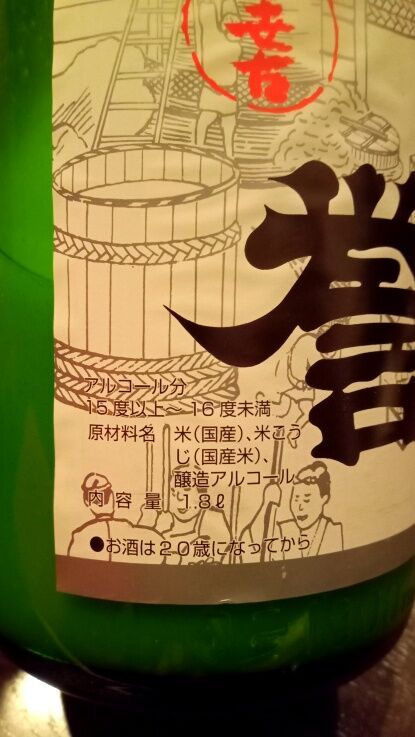 誉
アルコール分
15度以上～16度未満
原材料名 米(国産)、米こう
じ(国産米)、
醸造アルコール
内容量 1.8ℓ
●お酒は20歳になってから